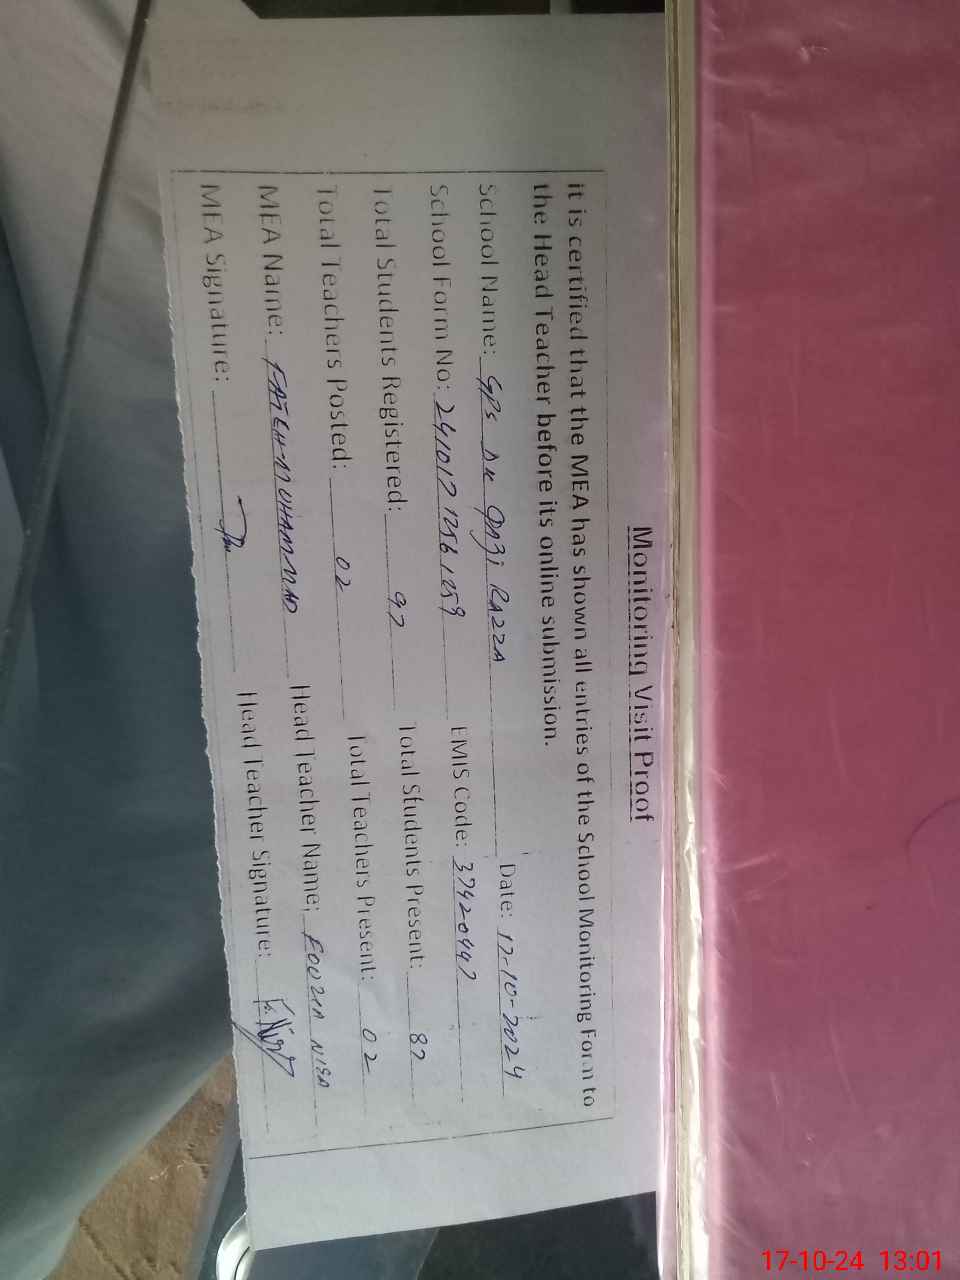 Monitoring Visit Proof
it is certified that the MEA has shown all entries of the School Monitoring Form to
the Head Teacher before its online submission.
School Name: GPS DK Qazi RAZZA Date: 17-10-2024
School Form No: EMIS Code: 37420447
Total Students Registered: 97 Total Students Present: 87
Total Teachers Posted: 02 Total Teachers Present: 02
MEA Name: FATEH MUHAMMAD Head Teacher Name: FOUZIA NISA
MEA Signature: Head Teacher Signature:
17-10-24 13:01